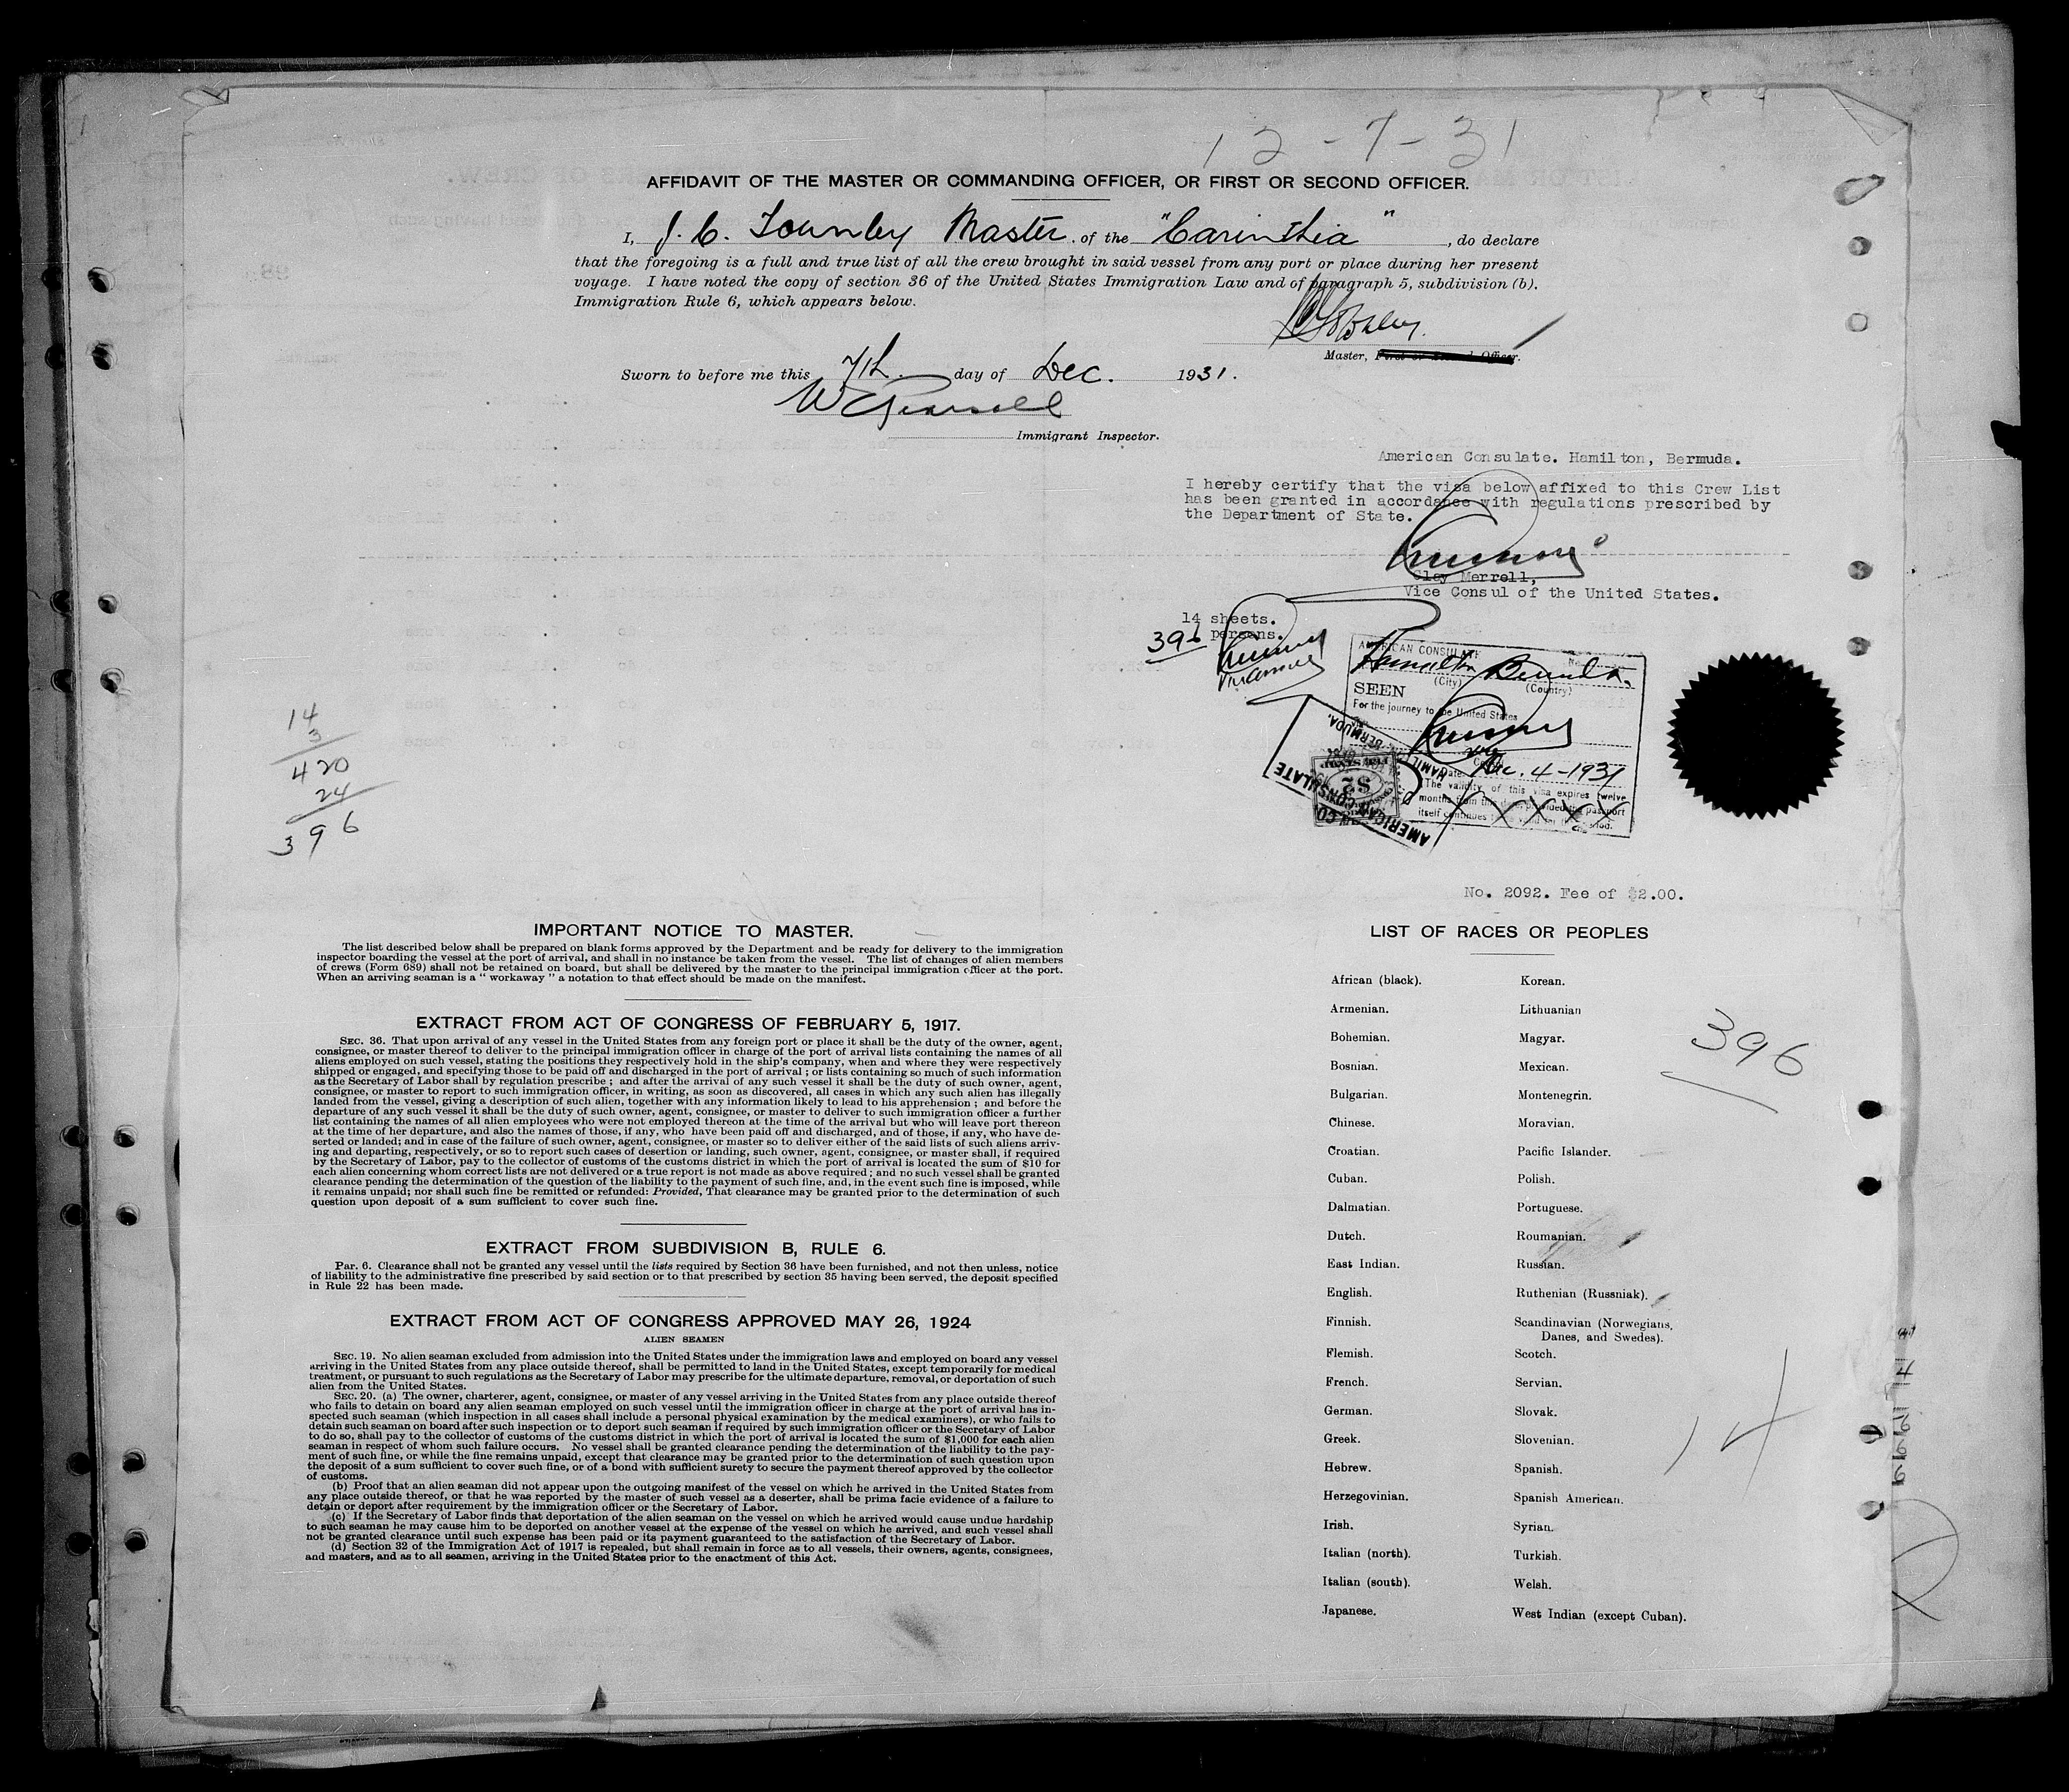 12-7-31
AFFIDAVIT OF THE MASTER OR COMMANDING OFFICER, OR FIRST OR SECOND OFFICER.
I, J. C. Townley Master of the "Carinthia", do declare
that the foregoing is a full and true list of all the crew brought in said vessel from any port or place during her present
voyage. I have noted the copy of section 36 of the United States Immigration Law and of paragraph 5, subdivision (b).
Immigration Rule 6, which appears below.
Master, First or Second Officer.
Sworn to before me this 7th. day of Dec. 1931.
Immigrant Inspector.
American Consulate. Hamilton, Bermuda.
I hereby certify that the visa below affixed to this Crew List
has been granted in accordance with regulations prescribed by
the Department of State.
Clay Merrell,
Vice Consul of the United States.
14 sheets.
396 persons.
AMERICAN CONSULATE
No.
Hamilton Bermuda.
(City) (Country)
SEEN
For the journey to the United States
Date Dec. 4-1931
The validity of this visa expires twelve
months from this date, provided the passport
itself continues to be valid for that period.
AMERICAN CONSULATE
HAMILTON, BERMUDA.
FEE STAMP
$2
14
3
420
24
396
No. 2092. Fee of $2.00.
IMPORTANT NOTICE TO MASTER.
The list described below shall be prepared on blank forms approved by the Department and be ready for delivery to the immigration
inspector boarding the vessel at the port of arrival, and shall in no instance be taken from the vessel. The list of changes of alien members
of crews (Form 689) shall not be retained on board, but shall be delivered by the master to the principal immigration officer at the port.
When an arriving seaman is a "workaway" a notation to that effect should be made on the manifest.
EXTRACT FROM ACT OF CONGRESS OF FEBRUARY 5, 1917.
SEC. 36. That upon arrival of any vessel in the United States from any foreign port or place it shall be the duty of the owner, agent,
consignee, or master thereof to deliver to the principal immigration officer in charge of the port of arrival lists containing the names of all
aliens employed on such vessel, stating the positions they respectively hold in the ship's company, when and where they were respectively
shipped or engaged, and specifying those to be paid off and discharged in the port of arrival; or lists containing so much of such information
as the Secretary of Labor shall by regulation prescribe; and after the arrival of any such vessel it shall be the duty of such owner, agent,
consignee, or master to report to such immigration officer, in writing, as soon as discovered, all cases in which any such alien has illegally
landed from the vessel, giving a description of such alien, together with any information likely to lead to his apprehension; and before the
departure of any such vessel it shall be the duty of such owner, agent, consignee, or master to deliver to such immigration officer a further
list containing the names of all alien employees who were not employed thereon at the time of the arrival but who will leave port thereon
at the time of her departure, and also the names of those, if any, who have been paid off and discharged, and of those, if any, who have de-
serted or landed; and in case of the failure of such owner, agent, consignee, or master so to deliver either of the said lists of such aliens arriv-
ing and departing, respectively, or so to report such cases of desertion or landing, such owner, agent, consignee, or master shall, if required
by the Secretary of Labor, pay to the collector of customs of the customs district in which the port of arrival is located the sum of $10 for
each alien concerning whom correct lists are not delivered or a true report is not made as above required; and no such vessel shall be granted
clearance pending the determination of the question of the liability to the payment of such fine, and, in the event such fine is imposed, while
it remains unpaid; nor shall such fine be remitted or refunded: Provided, That clearance may be granted prior to the determination of such
question upon deposit of a sum sufficient to cover such fine.
EXTRACT FROM SUBDIVISION B, RULE 6.
Par. 6. Clearance shall not be granted any vessel until the lists required by Section 36 have been furnished, and not then unless, notice
of liability to the administrative fine prescribed by said section or to that prescribed by section 35 having been served, the deposit specified
in Rule 22 has been made.
EXTRACT FROM ACT OF CONGRESS APPROVED MAY 26, 1924
ALIEN SEAMEN
SEC. 19. No alien seaman excluded from admission into the United States under the immigration laws and employed on board any vessel
arriving in the United States from any place outside thereof, shall be permitted to land in the United States, except temporarily for medical
treatment, or pursuant to such regulations as the Secretary of Labor may prescribe for the ultimate departure, removal, or deportation of such
alien from the United States.
SEC. 20. (a) The owner, charterer, agent, consignee, or master of any vessel arriving in the United States from any place outside thereof
who fails to detain on board any alien seaman employed on such vessel until the immigration officer in charge at the port of arrival has in-
spected such seaman (which inspection in all cases shall include a personal physical examination by the medical examiners), or who fails to
detain such seaman on board after such inspection or to deport such seaman if required by such immigration officer or the Secretary of Labor
to do so, shall pay to the collector of customs of the customs district in which the port of arrival is located the sum of $1,000 for each alien
seaman in respect of whom such failure occurs. No vessel shall be granted clearance pending the determination of the liability to the pay-
ment of such fine, or while the fine remains unpaid, except that clearance may be granted prior to the determination of such question upon
the deposit of a sum sufficient to cover such fine, or of a bond with sufficient surety to secure the payment thereof approved by the collector
of customs.
(b) Proof that an alien seaman did not appear upon the outgoing manifest of the vessel on which he arrived in the United States from
any place outside thereof, or that he was reported by the master of such vessel as a deserter, shall be prima facie evidence of a failure to
detain or deport after requirement by the immigration officer or the Secretary of Labor.
(c) If the Secretary of Labor finds that deportation of the alien seaman on the vessel on which he arrived would cause undue hardship
to such seaman he may cause him to be deported on another vessel at the expense of the vessel on which he arrived, and such vessel shall
not be granted clearance until such expense has been paid or its payment guaranteed to the satisfaction of the Secretary of Labor.
(d) Section 32 of the Immigration Act of 1917 is repealed, but shall remain in force as to all vessels, their owners, agents, consignees,
and masters, and as to all seamen, arriving in the United States prior to the enactment of this Act.
LIST OF RACES OR PEOPLES
African (black). Korean.
Armenian. Lithuanian
Bohemian. Magyar.
Bosnian. Mexican.
Bulgarian. Montenegrin.
Chinese. Moravian.
Croatian. Pacific Islander.
Cuban. Polish.
Dalmatian. Portuguese.
Dutch. Roumanian.
East Indian. Russian.
English. Ruthenian (Russniak).
Finnish. Scandinavian (Norwegians,
Danes, and Swedes).
Flemish. Scotch.
French. Servian.
German. Slovak.
Greek. Slovenian.
Hebrew. Spanish.
Herzegovinian. Spanish American.
Irish. Syrian.
Italian (north). Turkish.
Italian (south). Welsh.
Japanese. West Indian (except Cuban).
396
14